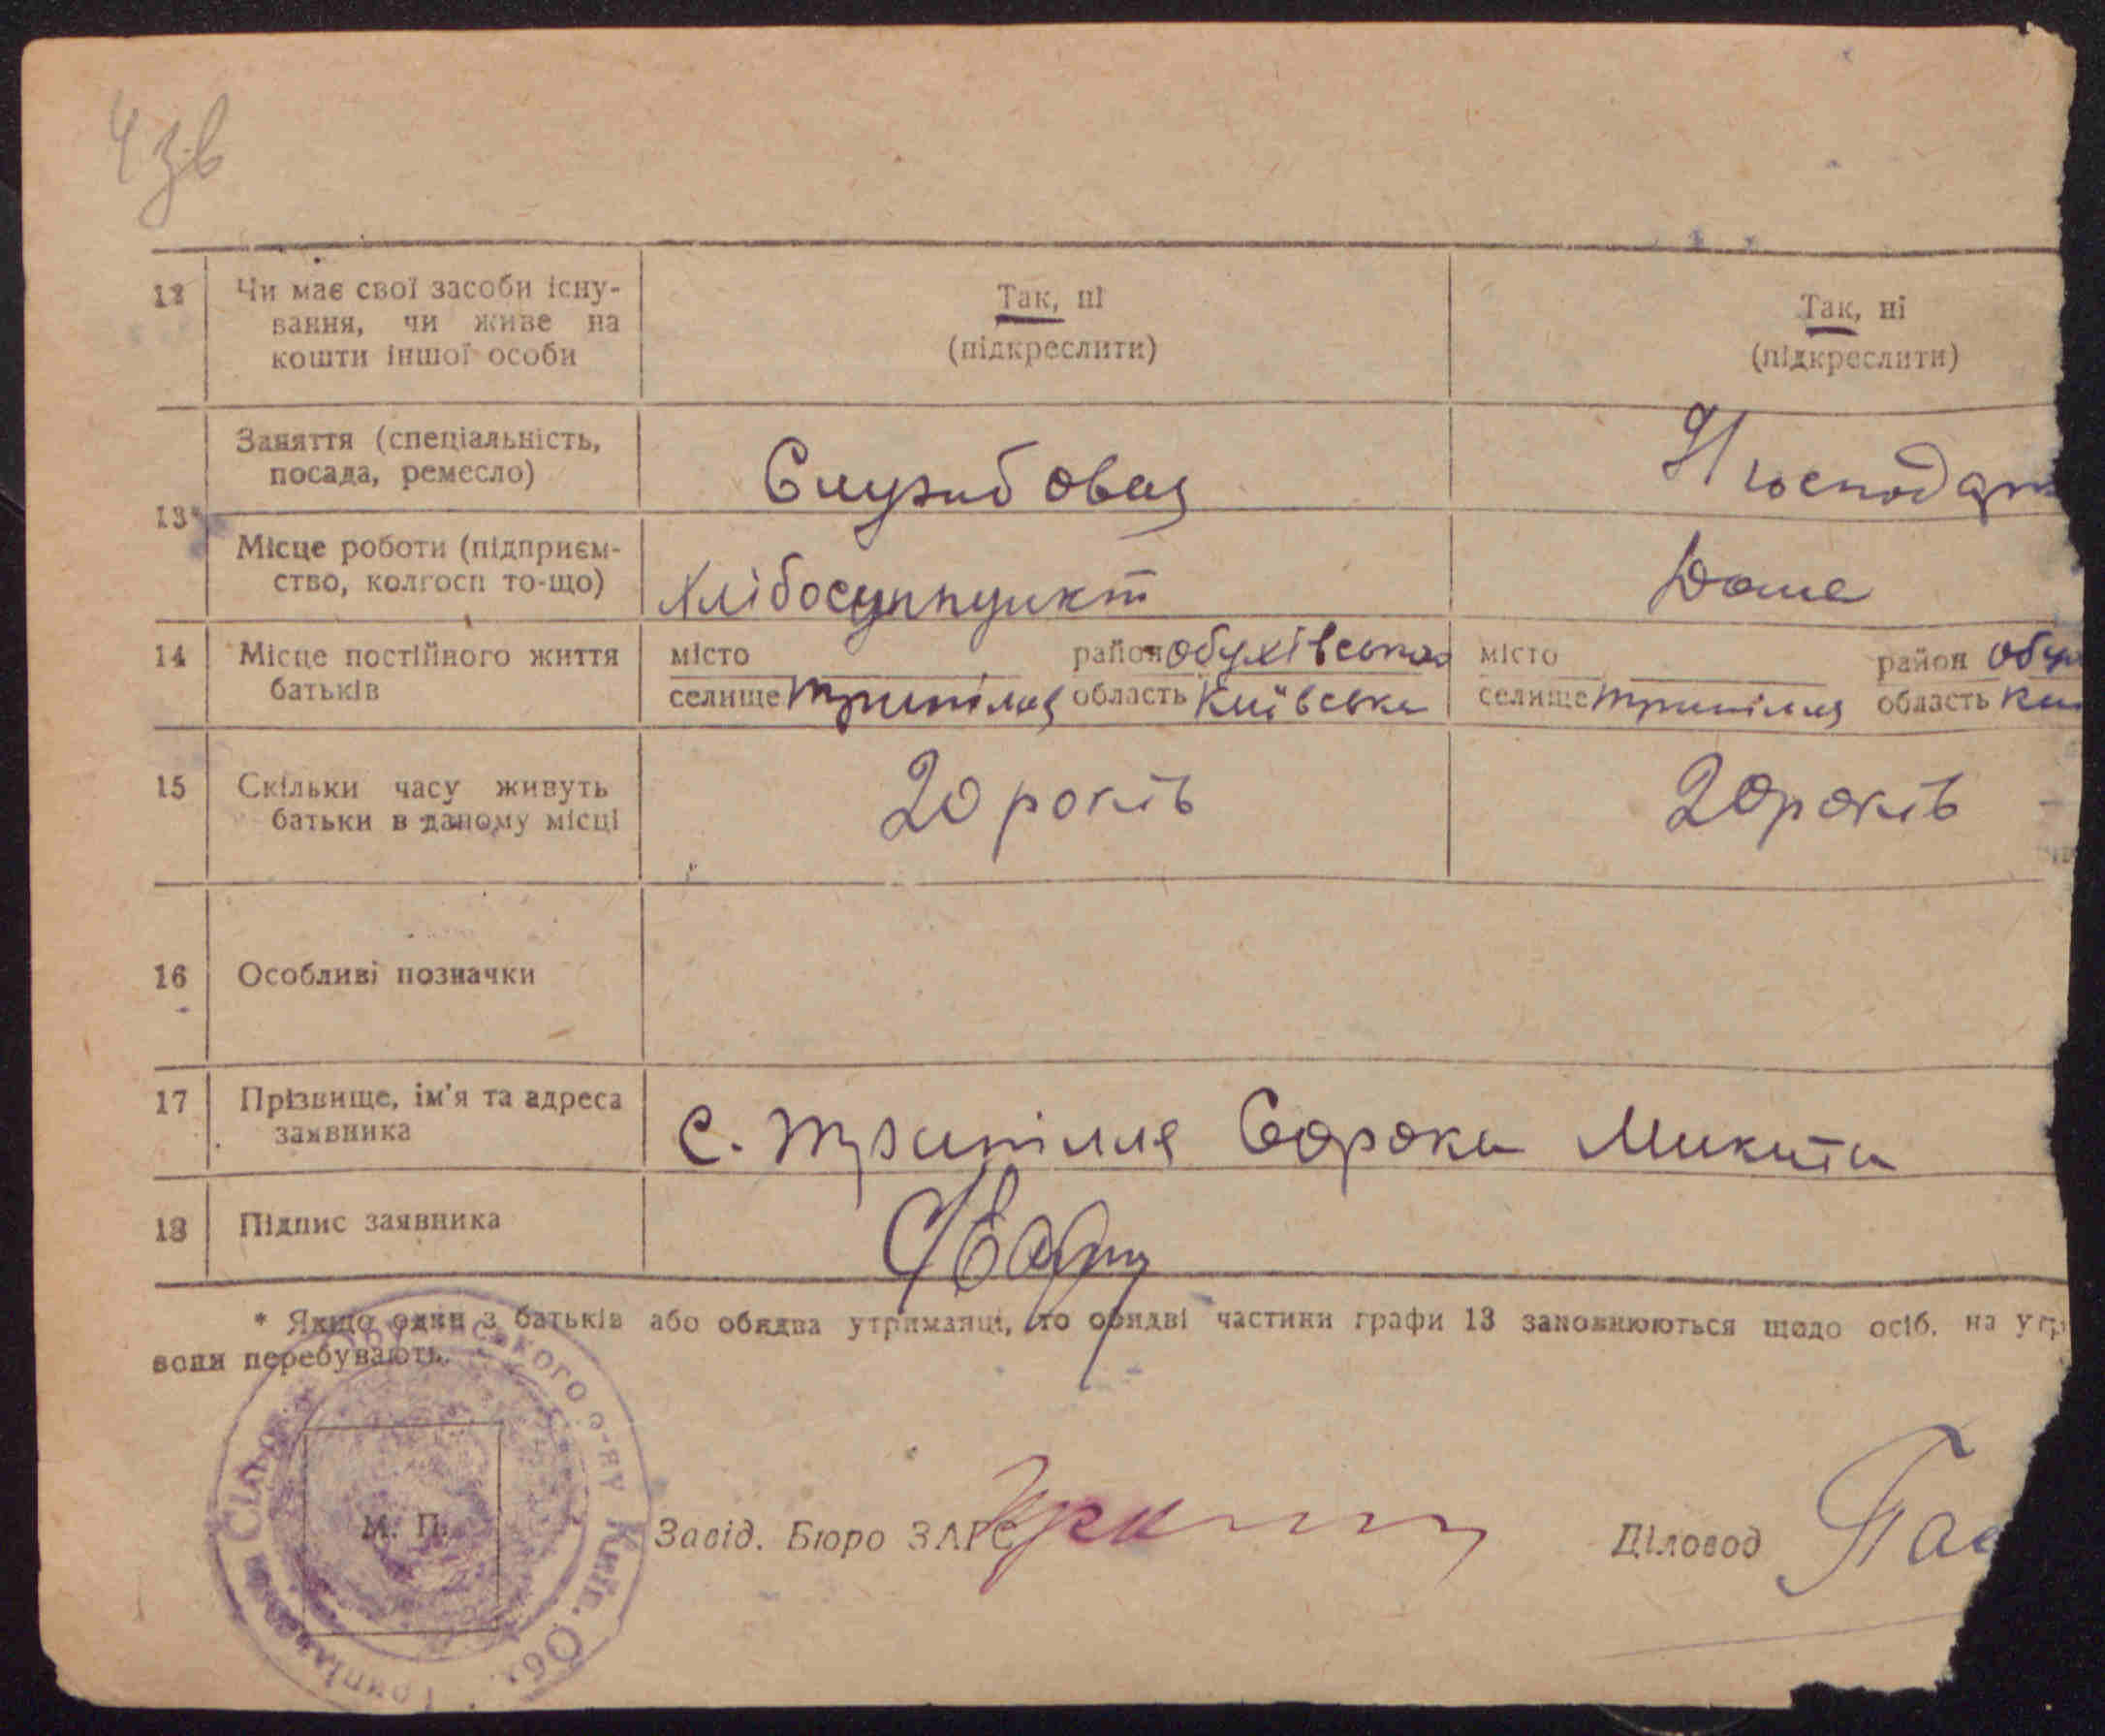 4 зв
12 Чи має свої засоби існу-
вання, чи живе на
кошти іншої особи
Так, ні
(підкреслити)
Так, ні
(підкреслити)
13*
Заняття (спеціальність,
посада, ремесло)
Службовец
Господар
Місце роботи (підприєм-
ство, колгосп то-що)
Хлібосуппункт
Дома
14 Місце постійного життя
батьків
місто район Обухівська
селище Трипілля область Київська
місто район Обух
селище Трипілля область Ки
15 Скільки часу живуть
батьки в даному місці
20 років
20 років
16 Особливі позначки
17 Прізвище, ім'я та адреса
заявника
с. Трипілля Сорока Микита
18 Підпис заявника
* Якщо один з батьків або обидва утриманці, то обидві частини графи 13 заповнюються щодо осіб, на утр
вони перебувають.
М. П.
Завід. Бюро ЗАГС
Діловод
Київ. Обл.